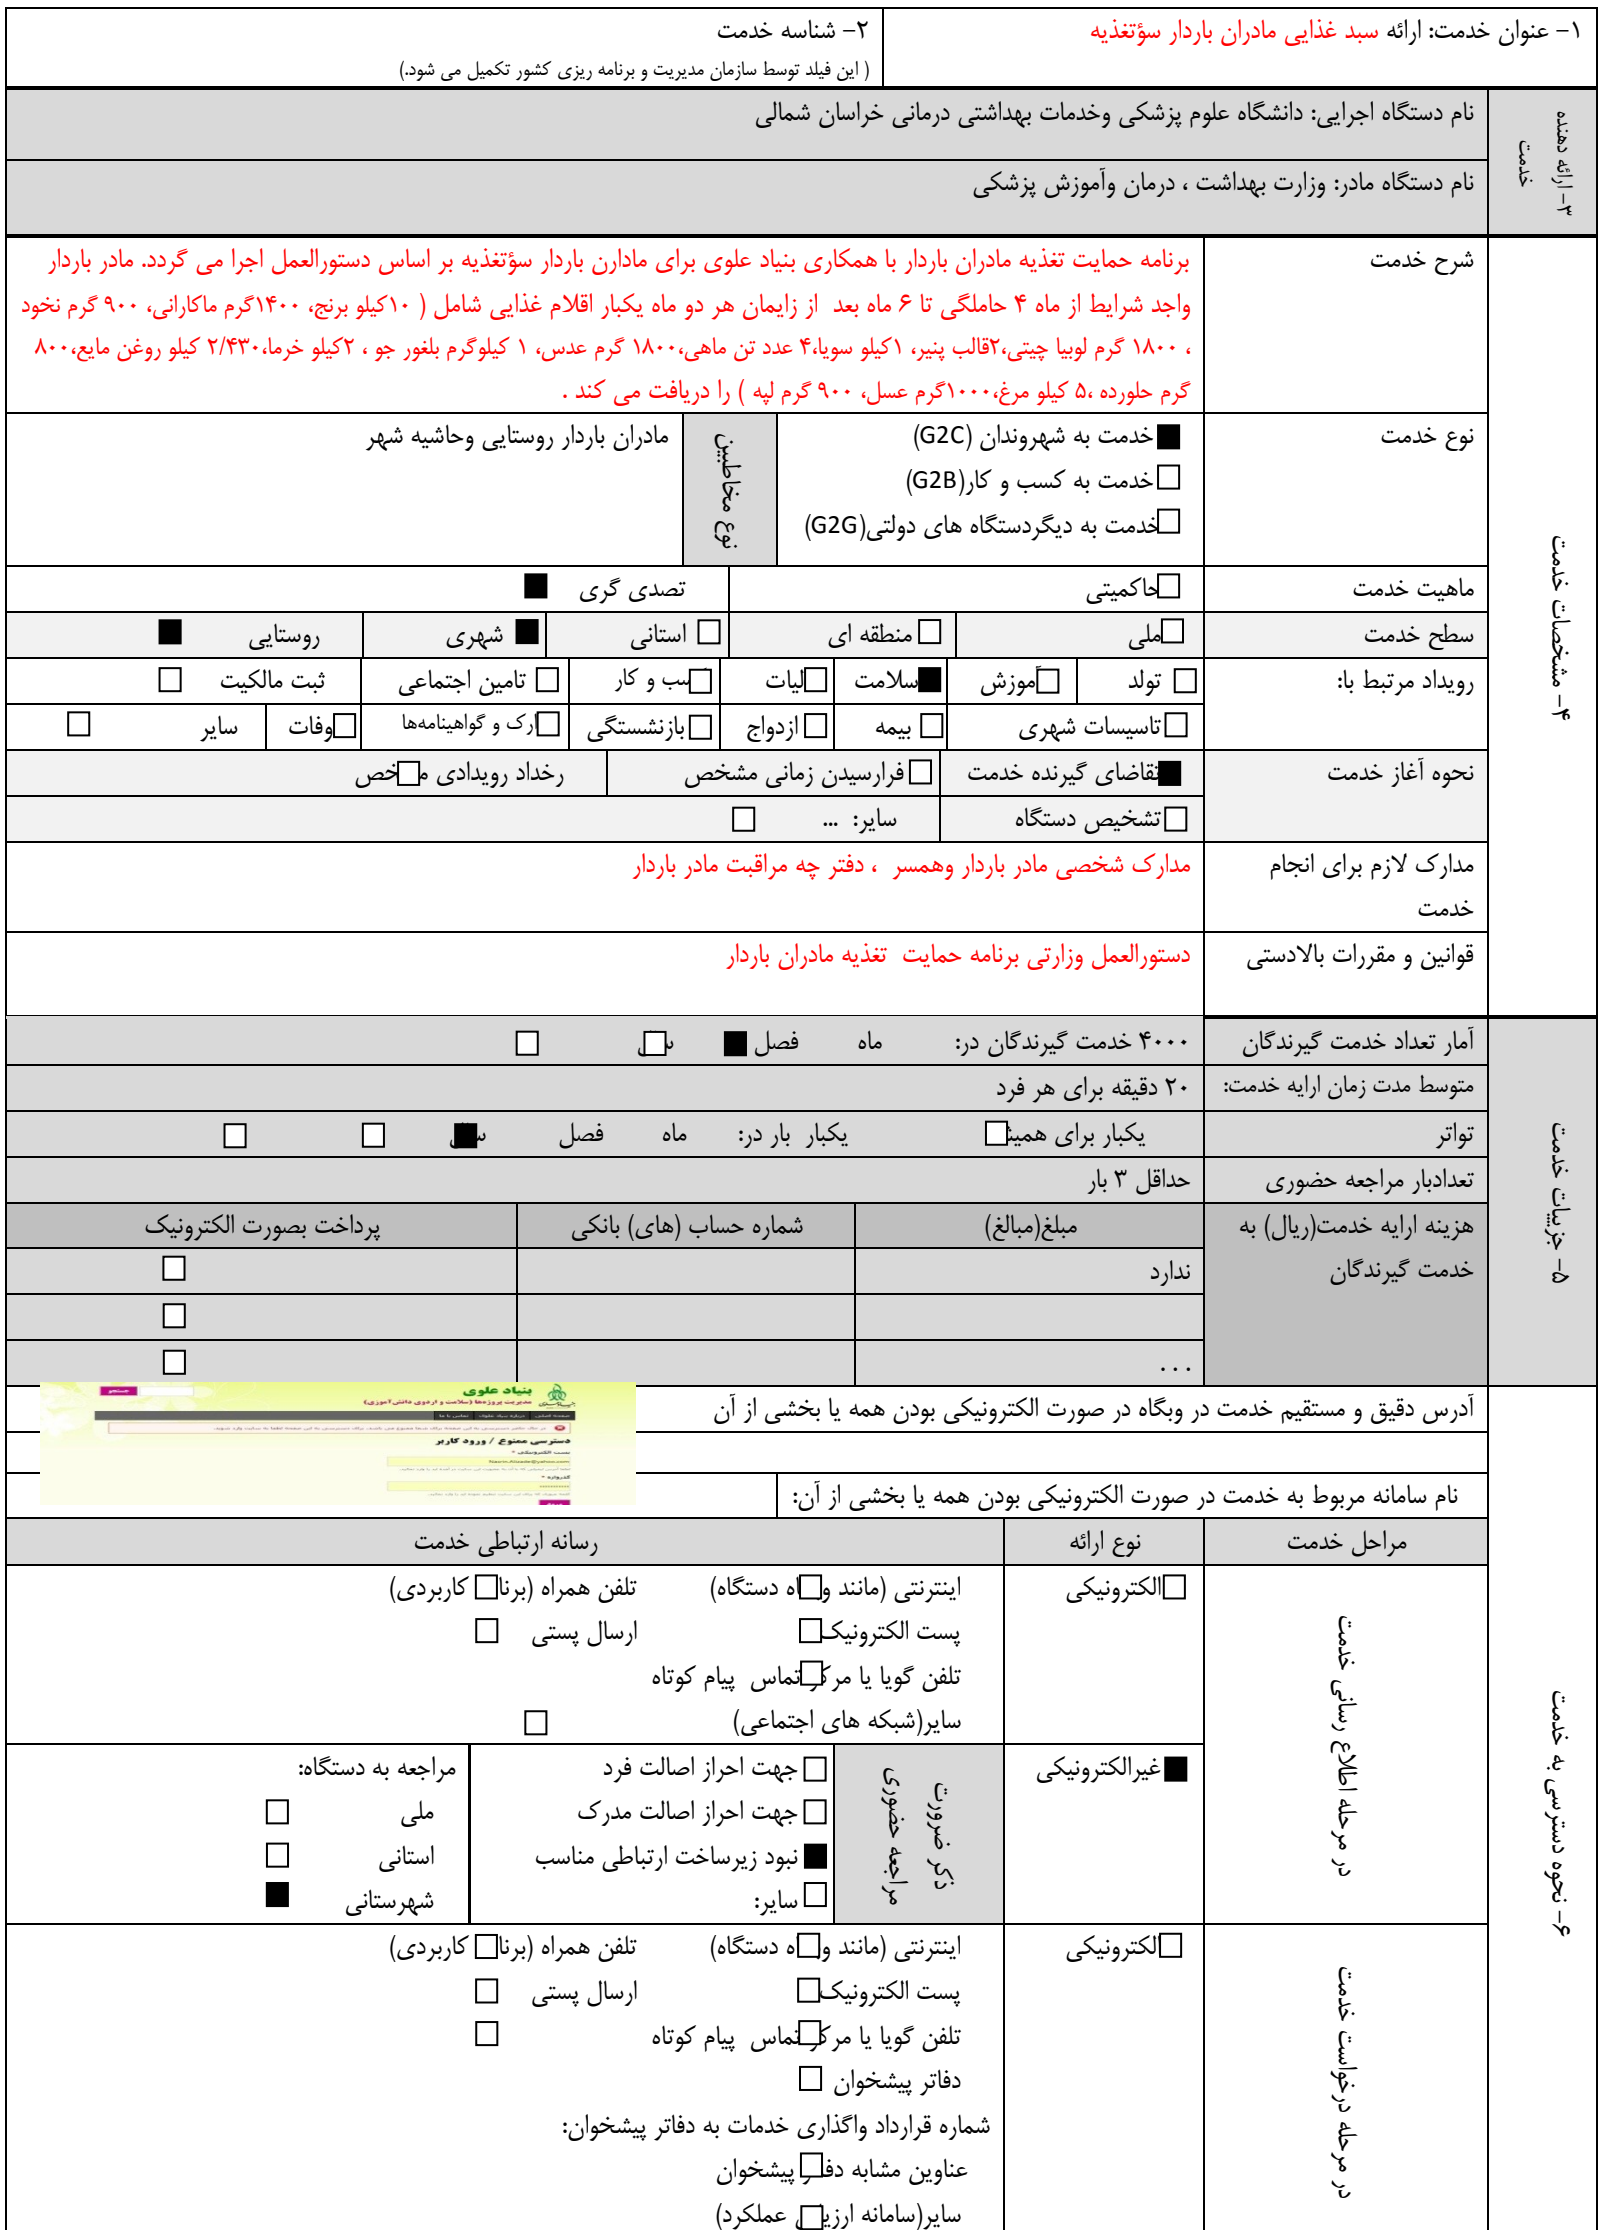 ۱- عنوان خدمت: ارائه سبد غذایی مادران باردار سؤتغذیه
۲- شناسه خدمت
( این فیلد توسط سازمان مدیریت و برنامه ریزی کشور تکمیل می شود.)
۳- ارائه دهنده خدمت
نام دستگاه اجرایی: دانشگاه علوم پزشکی وخدمات بهداشتی درمانی خراسان شمالی
نام دستگاه مادر: وزارت بهداشت ، درمان وآموزش پزشکی
۴- مشخصات خدمت
شرح خدمت
برنامه حمایت تغذیه مادران باردار با همکاری بنیاد علوی برای مادارن باردار سؤتغذیه بر اساس دستورالعمل اجرا می گردد. مادر باردار
واجد شرایط از ماه ۴ حاملگی تا ۶ ماه بعد از زایمان هر دو ماه یکبار اقلام غذایی شامل ( ۱۰کیلو برنج، ۱۴۰۰گرم ماکارانی، ۹۰۰ گرم نخود
، ۱۸۰۰ گرم لوبیا چیتی،۲قالب پنیر، ۱کیلو سویا،۴ عدد تن ماهی،۱۸۰۰ گرم عدس، ۱ کیلوگرم بلغور جو ، ۲کیلو خرما،۲/۴۳۰ کیلو روغن مایع،۸۰۰
گرم حلورده ،۵ کیلو مرغ،۱۰۰۰گرم عسل، ۹۰۰ گرم لپه ) را دریافت می کند .
نوع خدمت
■خدمت به شهروندان (G2C)
□خدمت به کسب و کار(G2B)
□خدمت به دیگردستگاه های دولتی(G2G)
نوع مخاطبین
مادران باردار روستایی وحاشیه شهر
ماهیت خدمت
□حاکمیتی
تصدی گری ■
سطح خدمت
□ملی
□ منطقه ای
□ استانی
■ شهری
روستایی ■
رویداد مرتبط با:
□ تولد
□آموزش
■سلامت
□لیات
□سب و کار
□ تامین اجتماعی
ثبت مالکیت □
□تاسیسات شهری
□ بیمه
□ ازدواج
□بازنشستگی
□ارک و گواهینامه‌ها
□وفات
سایر □
نحوه آغاز خدمت
■تقاضای گیرنده خدمت
□فرارسیدن زمانی مشخص
رخداد رویدادی م□خص
□تشخیص دستگاه
سایر: ... □
مدارک لازم برای انجام
خدمت
مدارک شخصی مادر باردار وهمسر ، دفتر چه مراقبت مادر باردار
قوانین و مقررات بالادستی
دستورالعمل وزارتی برنامه حمایت تغذیه مادران باردار
۵- جزییات خدمت
آمار تعداد خدمت گیرندگان
۴۰۰۰ خدمت گیرندگان در: ماه فصل ■ □ □
متوسط مدت زمان ارایه خدمت:
۲۰ دقیقه برای هر فرد
تواتر
یکبار برای همیش□ یکبار بار در: ماه فصل ■ □ □
تعدادبار مراجعه حضوری
حداقل ۳ بار
هزینه ارایه خدمت(ریال) به
خدمت گیرندگان
مبلغ(مبالغ)
شماره حساب (های) بانکی
پرداخت بصورت الکترونیک
ندارد
□
□
. . .
□
۶- نحوه دسترسی به خدمت
آدرس دقیق و مستقیم خدمت در وبگاه در صورت الکترونیکی بودن همه یا بخشی از آن
بنیاد علوی
مدیریت پروژه‌ها (سلامت و اردوی دانش آموزی)
جستجو
دسترسی ممنوع / ورود کاربر
نام سامانه مربوط به خدمت در صورت الکترونیکی بودن همه یا بخشی از آن:
مراحل خدمت
نوع ارائه
رسانه ارتباطی خدمت
در مرحله اطلاع رسانی خدمت
□الکترونیکی
اینترنتی (مانند و□اه دستگاه) تلفن همراه (برنا□ کاربردی)
پست الکترونیک□ ارسال پستی □
تلفن گویا یا مرک□تماس پیام کوتاه
سایر(شبکه های اجتماعی) □
■غیرالکترونیکی
ذکر ضرورت مراجعه حضوری
□جهت احراز اصالت فرد
□جهت احراز اصالت مدرک
■نبود زیرساخت ارتباطی مناسب
□سایر:
مراجعه به دستگاه:
ملی □
استانی □
شهرستانی ■
در مرحله درخواست خدمت
□لکترونیکی
اینترنتی (مانند و□ه دستگاه) تلفن همراه (برنا□ کاربردی)
پست الکترونیک□ ارسال پستی □
تلفن گویا یا مرک□تماس پیام کوتاه □
دفاتر پیشخوان □
شماره قرارداد واگذاری خدمات به دفاتر پیشخوان:
عناوین مشابه دف□ پیشخوان
سایر(سامانه ارزی□ عملکرد)